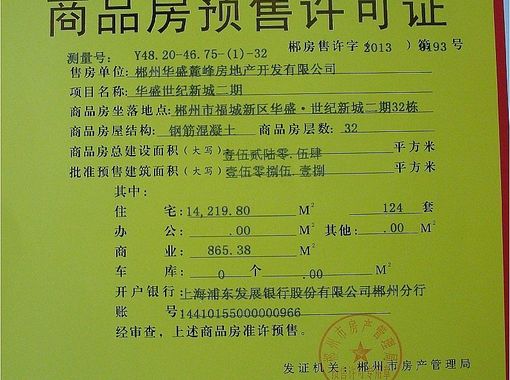 商品房预售许可证
测量号: Y48.20-46.75-(1)-32 郴房售许字( 2013 )第0193号
售房单位: 郴州华盛麓峰房地产开发有限公司
项目名称: 华盛世纪新城二期
商品房坐落地点: 郴州市福城新区华盛·世纪新城二期32栋
商品房屋结构: 钢筋混凝土 商品房层数: 32
商品房总建设面积(大写) 壹伍贰陆零.伍肆 平方米
批准预售建筑面积(大写) 壹伍零捌伍.壹捌 平方米
其中:
住 宅: 14,219.80 M² 124 套
办 公: .00 M² 其他: .00 M²
商 业: 865.38 M²
车 库: 0 个 .00 M²
开户银行: 上海浦东发展银行股份有限公司郴州分行
账 号: 14410155000000966
经审查,上述商品房准许预售。
郴州市房产管理局
发证机关: 郴州市房产管理局